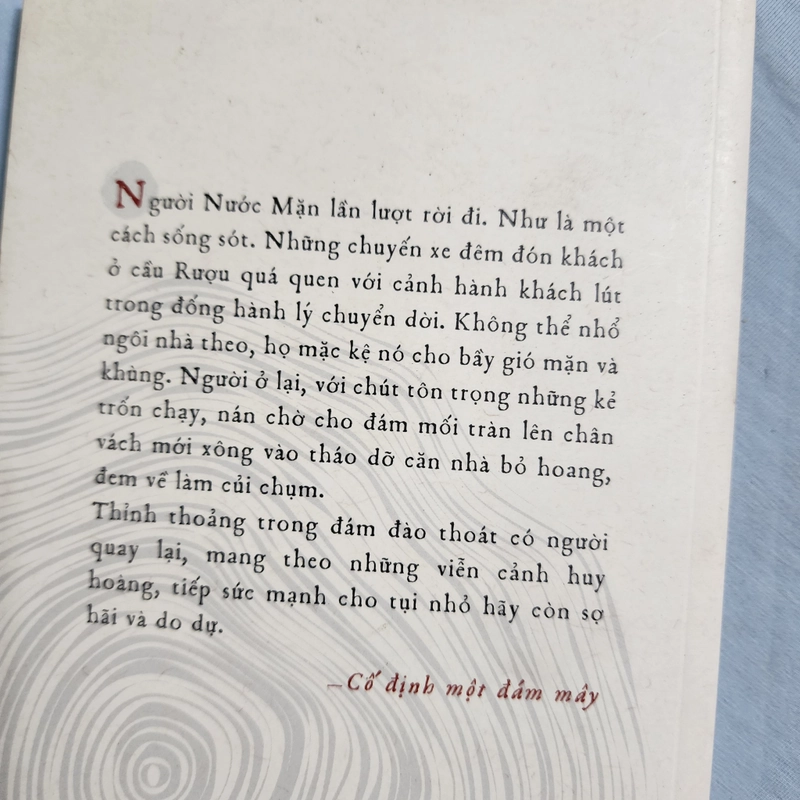 Người Nước Mặn lần lượt rời đi. Như là một
cách sống sót. Những chuyến xe đêm đón khách
ở cầu Rượu quá quen với cảnh hành khách lút
trong đống hành lý chuyển dời. Không thể nhổ
ngôi nhà theo, họ mặc kệ nó cho bầy gió mặn và
khùng. Người ở lại, với chút tôn trọng những kẻ
trốn chạy, nán chờ cho đám mối tràn lên chân
vách mới xông vào tháo dỡ căn nhà bỏ hoang,
đem về làm củi chụm.
Thỉnh thoảng trong đám đào thoát có người
quay lại, mang theo những viễn cảnh huy
hoàng, tiếp sức mạnh cho tụi nhỏ hãy còn sợ
hãi và do dự.
–Cố định một đám mây